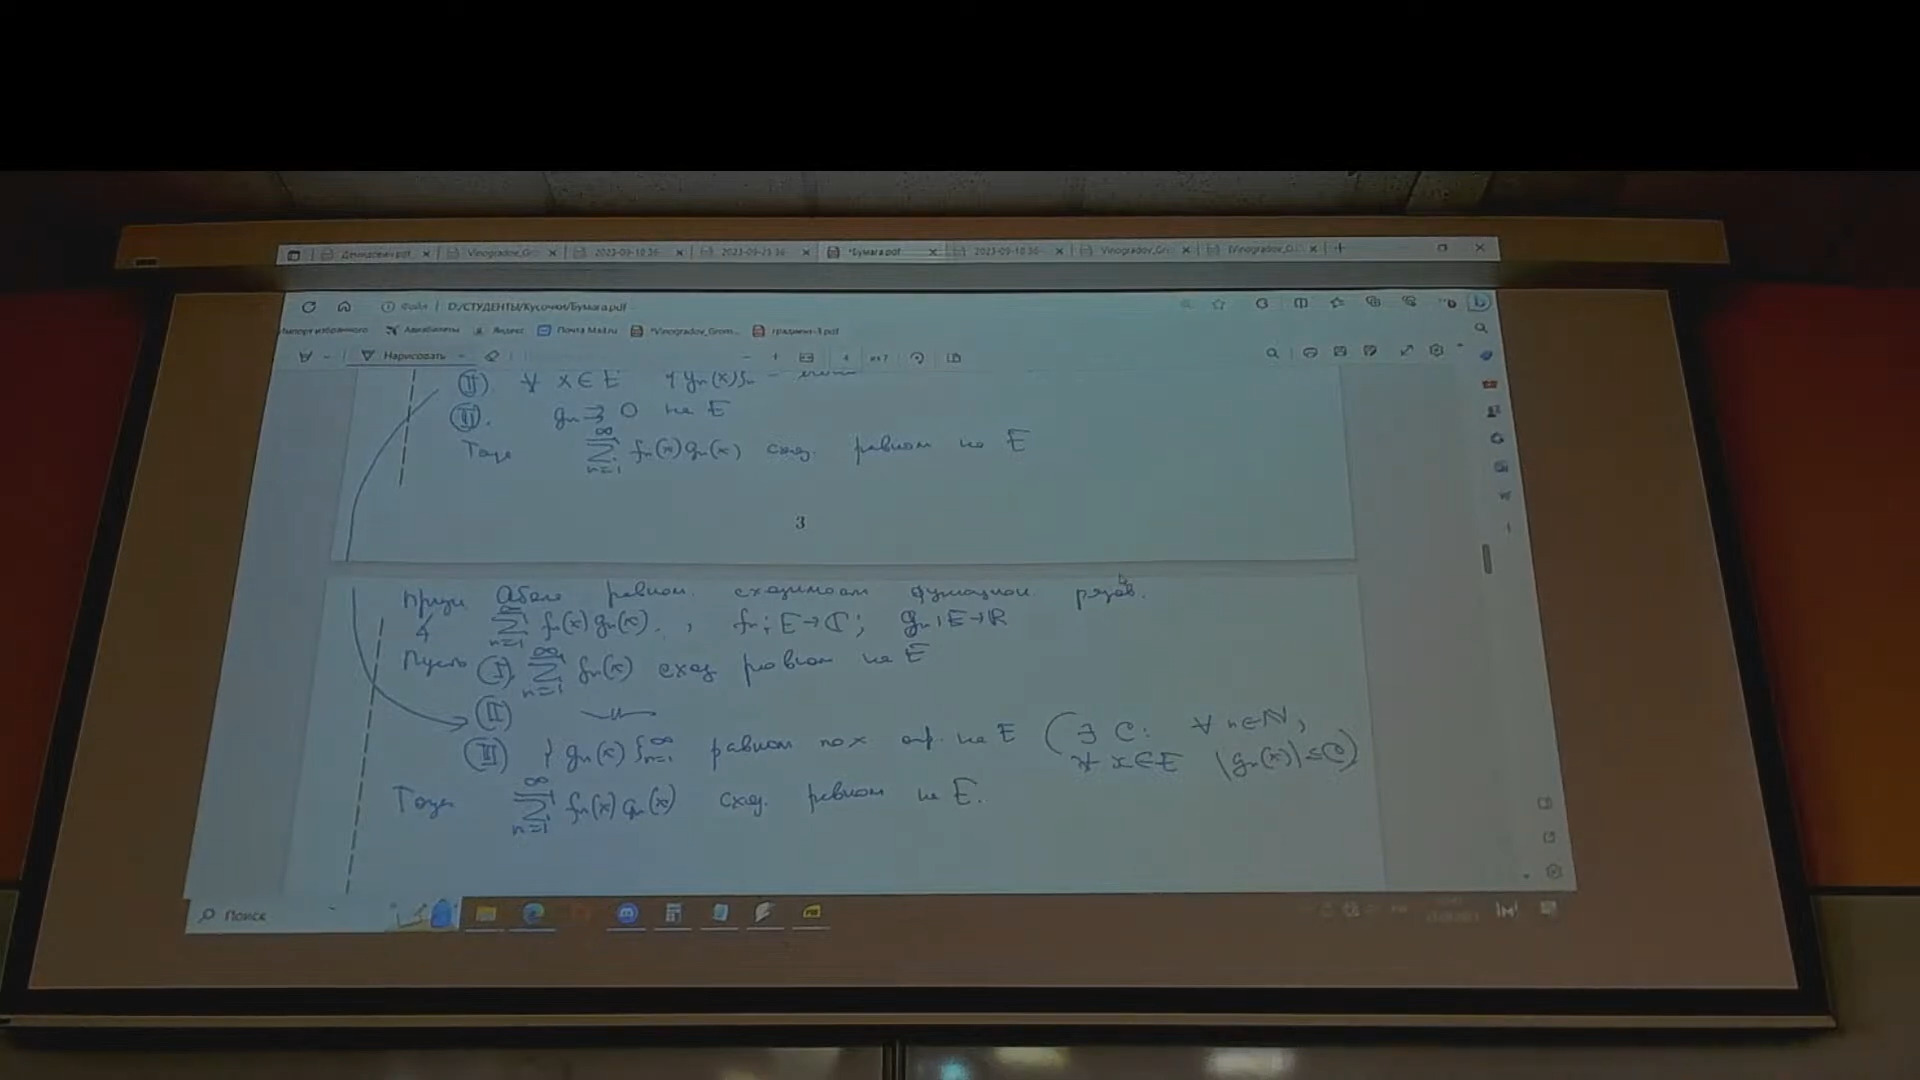 Демидович.pdf Vinogradov_Gr 2023-09-10 36 2023-09-23 36 *Бумага.pdf 2023-09-10 36 Vinogradov_Gr
Файл D:/СТУДЕНТЫ/Кусочки/Бумага.pdf
Импорт избранного Авиабилеты Яндекс Почта Mail.ru *Vinogradov_Grom... градиент-3.pdf
Нарисовать 4 из 7
(II) ∀ x∈E {gn(x)}n –
(III). gn ⇉ 0 на E
Тогда ∑_{n=1}^∞ fn(x)gn(x) сход. равном на E
3
Призн Абеля равном. сходимости функцион. рядов.
∑_{n=1}^∞ fn(x)gn(x). , fn: E→ℂ; gn: E→ℝ
Пусть (I) ∑_{n=1}^∞ fn(x) сход равном на E
(II) —〃—
(III) {gn(x)}_{n=1}^∞ равном по x огр. на E (∃ C: ∀ n∈ℕ,
∀ x∈E |gn(x)|≤C)
Тогда ∑_{n=1}^∞ fn(x)gn(x) сход. равном на E.
Поиск